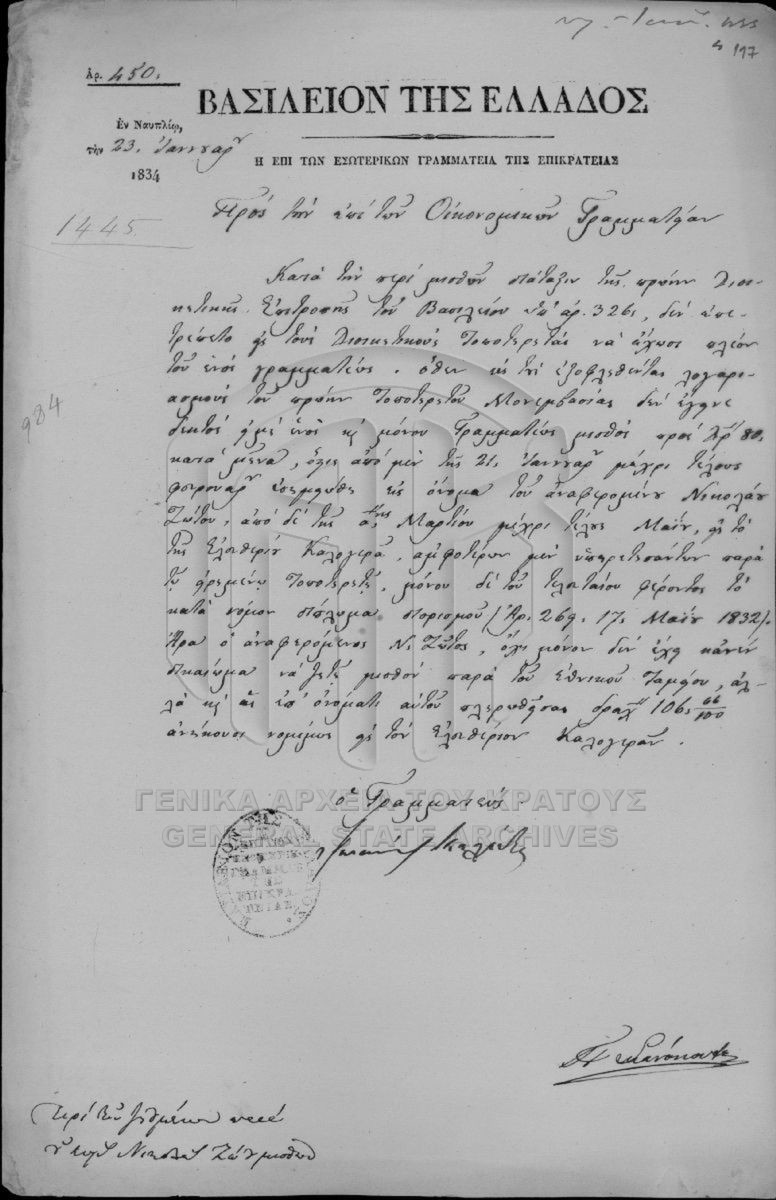 197
Ἀρ. 450.
ΒΑΣΙΛΕΙΟΝ ΤΗΣ ΕΛΛΑΔΟΣ
Ἐν Ναυπλίῳ,
τὴν 23. Ἰαννουαρ
1834
Η ΕΠΙ ΤΩΝ ΕΣΩΤΕΡΙΚΩΝ ΓΡΑΜΜΑΤΕΙΑ ΤΗΣ ΕΠΙΚΡΑΤΕΙΑΣ
Πρὸς τὴν ἐπὶ τῶν Οἰκονομικῶν Γραμματείαν
1445
Κατὰ τὴν περὶ μισθῶν διάταξιν τῆς πρώην Διοι-
κητικῆς Ἐπιτροπῆς τοῦ Βασιλείου ὑπ' ἀρ. 326, δὲν ἐπε-
τρέπετο εἰς τοὺς Διοικητικοὺς Τοποτηρετὰς νὰ ἔχωσι πλέον
τοῦ ἑνὸς γραμματέως. ὅθεν εἰς τοὺς ἐξοφλεθέντας λογαρι-
984
ασμοὺς τοῦ πρώην Τοποτερετοῦ Μονεμβασίας δὲν ἔγινε
δεκτὸς εἰμὴ ἑνὸς κ μόνου Γραμματέως μισθὸς πρὸς δρ 80
κατὰ μῆνα, ὅστις ἀπὸ μὲν τῆς 21 Ἰαννουαρ μέχρι τέλους
φεβρουαρ ἐπεμφθη εἰς ὄνομα τοῦ ἀναφερομένου Νικολάου
Ζώτου, ἀπὸ δὲ τῆς α Μαρτίου μέχρι τέλους Μαΐου, εἰς τὸ
τῆς Ἐλευθερίου Καλογερᾶ, ἀμφοτέρων μὲν ὑπηρετεσάντων παρὰ
τῷ εἰρημένῳ Τοποτερετῇ, μόνου δὲ τοῦ τελευταίου φέροντος τὸ
κατὰ νόμον δίπλωμα διορισμοῦ (Ἀρ. 269. 17. Μαΐου 1832).
Ἄρα ὁ ἀναφερόμενος Ν. Ζῶτος, ὄχι μόνον δὲν ἔχει κανὲν
δικαίωμα νὰ ζητῇ μισθὸν παρὰ τοῦ Ἐθνικοῦ Ταμείου, ἀλ-
λὰ κ αἱ ἐπ' ὀνόματι αὐτοῦ πληρωθεῖσαι δραχ 106 66/100
ἀνήκουσι νομίμως εἰς τὸν Ἐλευθέριον Καλογερᾶν.
ὁ Γραμματεύς
ΓΕΝΙΚΑ ΑΡΧΕΙΑ ΤΟΥ ΚΡΑΤΟΥΣ
GENERAL STATE ARCHIVES